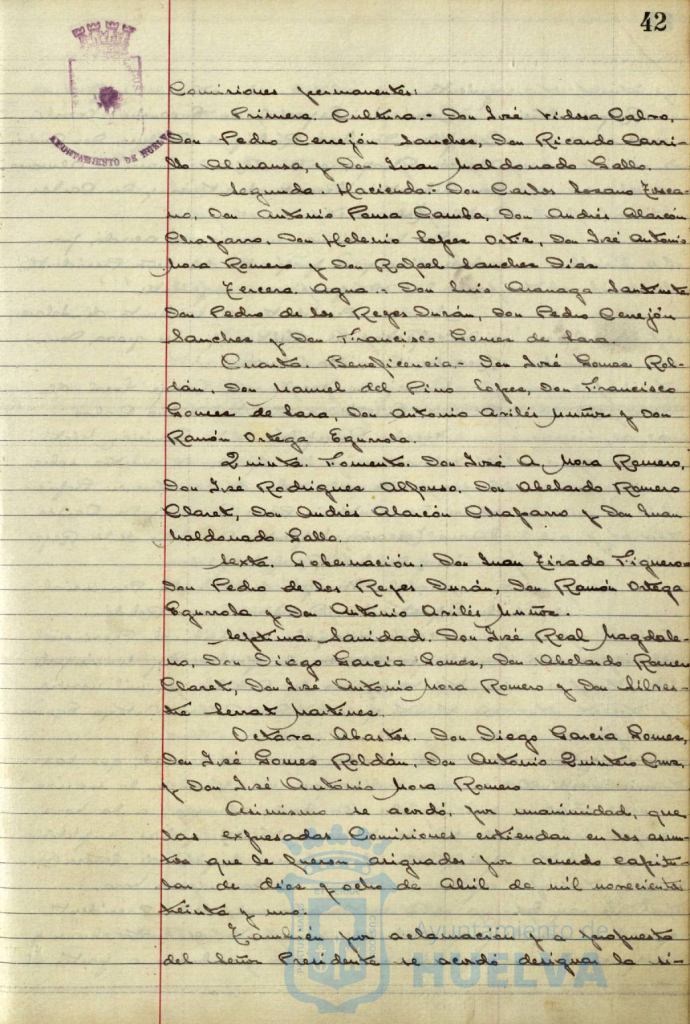 42
AYUNTAMIENTO DE HUELVA
Comisiones permanentes:
Primera. Cultura.- Don José Vidosa Calvo,
Don Pedro Cerrejón Sanchez, Don Ricardo Carri-
llo Almansa, y Don Juan Maldonado Gallo.
Segunda. Hacienda.- Don Carlos Lozano Tosca-
no, Don Antonio Pousa Camba, Don Andrés Alarcón
Chaparro, Don Helenio Lopez Ortiz, Don José Antonio
Mora Romero y Don Rafael Sanchez Diaz
Tercera. Agua.- Don Luis
Don Pedro de los Reyes Durán, Don Pedro Cerrejón
Sanchez y Don Francisco Gomez de Lara.
Cuarta. Beneficencia.- Don José Gomez Rol-
dán, Don Manuel del Pino Lopez, Don Francisco
Gomez de Lara, Don Antonio Avilés Muñoz y Don
Ramón Ortega Egurrola.
Quinta. Fomento. Don José A. Mora Romero,
Don José Rodriguez Alfonso, Don Abelardo Romero
Claret, Don Andrés Alarcón Chaparro y Don Juan
Maldonado Gallo.
Sexta. Gobernación. Don Juan Tirado Figueroa
Don Pedro de los Reyes Durán, Don Ramón Ortega
Egurrola y Don Antonio Avilés Muñoz.
Septima. Sanidad. Don José Real Magdale-
no, Don Diego Garcia Gomez, Don Abelardo Romero
Claret, Don José Antonio Mora Romero y Don Silves-
tre Serrat Martinez.
Octava. Abastos. Don Diego García Gomez,
Don José Gomez Roldán, Don Antonio Quintero Cruz,
y Don José Antonio Mora Romero
Asimismo se acordó, por unanimidad, que
las expresadas Comisiones entiendan en los asun-
tos que le fueron asignados por acuerdo capitu-
lar de diez y ocho de Abril de mil novecientos
treinta y uno.
También por aclamación y a propuesta
del Señor Presidente se acordó designar la si-
Ayuntamiento de
HUELVA